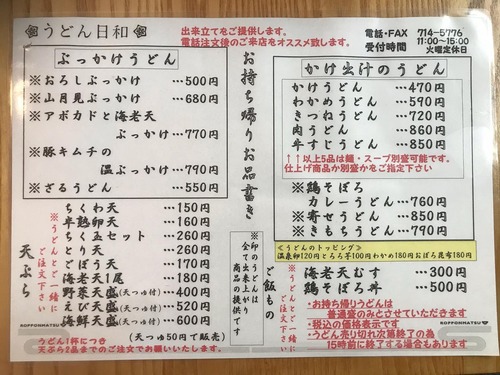 うどん日和
出来立てをご提供します。
電話注文後のご来店をオススメ致します。
電話・FAX 714-5776
受付時間 11:00〜15:00
火曜定休日
お持ち帰りお品書き
ぶっかけうどん
※おろしぶっかけ …500円
※山月見ぶっかけ …680円
※アボカドと海老天
ぶっかけ…770円
※豚キムチの
温ぶっかけ…790円
※ざるうどん …550円
かけ出汁のうどん
かけうどん …470円
わかめうどん …590円
きつねうどん …720円
肉うどん …860円
牛すじうどん …850円
↑↑以上5品は麺・スープ別盛可能です。
仕上げ商品か別盛かをご指定下さい
※鶏そぼろ
カレーうどん …760円
※寄せうどん …850円
※きもちうどん …790円
≪うどんのトッピング≫
温泉卵120円とろろ芋100円わかめ180円おぼろ昆布180円
天ぷら
※うどんと一緒に
ご注文下さい
ちくわ天 …150円
半熟卵天 …160円
ちく玉セット …260円
とり天 …260円
ごぼう天 …170円
海老天1尾 …180円
野菜天盛(天つゆ付) …400円
えび天盛(天つゆ付) …600円
海鮮天盛(天つゆ付) …600円
(天つゆ50円で販売)
うどん1杯につき
天ぷら2品までのご注文でお願いいたします。
※印のうどんは
全て出来上がり
商品の提供です
ご飯もの
※うどんと一緒に
ご注文下さい
海老天むす …300円
鶏そぼろ丼 …500円
・お持ち帰りうどんは
普通盛のみとさせていただきます
・税込の価格表示です
・うどん売り切れ次第終了の為
15時前に終了する場合もあります
ROPPONMATSU
ROPPONMATSU